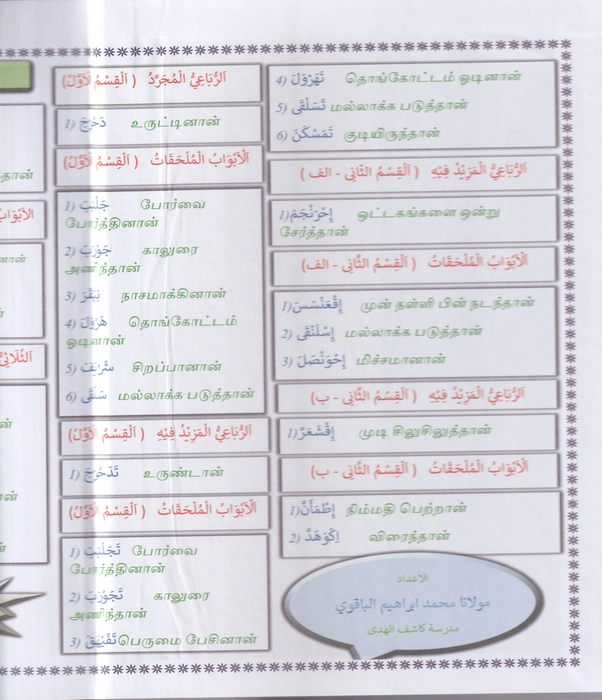 اَلرُّبَاعِيُّ الْمُجَرَّدُ ( اَلْقِسْمُ الْاَوَّلُ)
1) دَحْرَجَ உருட்டினான்
اَلْاَبْوَابُ الْمُلْحَقَاتُ ( اَلْقِسْمُ الْاَوَّلُ)
1) جَلْبَبَ போர்வை
போர்த்தினான்
2) جَوْرَبَ காலுரை
அணிந்தான்
3) بَيْقَرَ நாசமாக்கினான்
4) هَرْوَلَ தொங்கோட்டம்
ஓடினான்
5) شَرْيَفَ சிறப்பானான்
6) سَلْقَى மல்லாக்க படுத்தான்
اَلرُّبَاعِيُّ الْمَزِيْدُ فِيْهِ ( اَلْقِسْمُ الْاَوَّلُ)
1) تَدَحْرَجَ உருண்டான்
اَلْاَبْوَابُ الْمُلْحَقَاتُ ( اَلْقِسْمُ الْاَوَّلُ)
1) تَجَلْبَبَ போர்வை
போர்த்தினான்
2) تَجَوْرَبَ காலுரை
அணிந்தான்
3) تَفَيْهَقَ பெருமை பேசினான்
4) تَهَرْوَلَ தொங்கோட்டம் ஓடினான்
5) تَسَلْقَى மல்லாக்க படுத்தான்
6) تَمَسْكَنَ குடியிருந்தான்
اَلرُّبَاعِيُّ الْمَزِيْدُ فِيْهِ ( اَلْقِسْمُ الثَّانِى - الف )
1) اِحْرَنْجَمَ ஒட்டகங்களை ஒன்று
சேர்த்தான்
اَلْاَبْوَابُ الْمُلْحَقَاتُ ( اَلْقِسْمُ الثَّانِى - الف)
1) اِقْعَنْسَسَ முன் தள்ளி பின் நடந்தான்
2) اِسْلَنْقَى மல்லாக்க படுத்தான்
3) اِحْوَنْصَلَ மிச்சமானான்
اَلرُّبَاعِيُّ الْمَزِيْدُ فِيْهِ ( اَلْقِسْمُ الثَّانِى - ب)
1) اِقْشَعَرَّ முடி சிலுசிலுத்தான்
اَلْاَبْوَابُ الْمُلْحَقَاتُ ( اَلْقِسْمُ الثَّانِى - ب)
1) اِطْمَأَنَّ நிம்மதி பெற்றான்
2) اِكْوَهَدَّ விரைந்தான்
الاعداد
مولانا محمد ابراهيم الباقوي
مدرسة كاشف الهدى